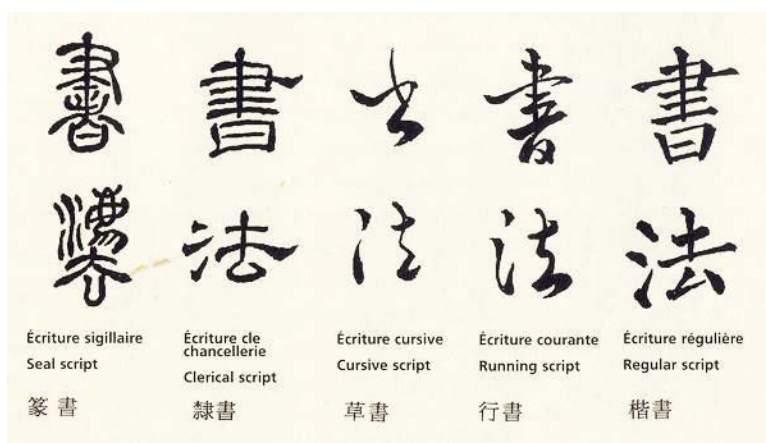 書 書 书 書 書
法 法 法 法 法
Écriture sigillaire
Seal script
篆書
Écriture cle
chancellerie
Clerical script
隸書
Écriture cursive
Cursive script
草書
Écriture courante
Running script
行書
Écriture régulière
Regular script
楷書